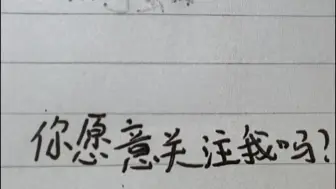 你愿意关注我吗?